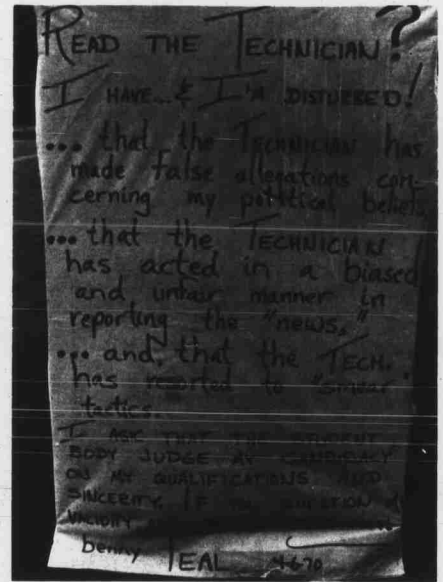 READ THE TECHNICIAN?
I HAVE...& I'M DISTURBED!
... that the TECHNICIAN has
made false allegations con-
cerning my political beliefs
... that the TECHNICIAN
has acted in a biased
and unfair manner in
reporting the "news."
... and, that the TECH.
has resorted to "smear"
tactics.
I ASK THAT THE STUDENT
BODY JUDGE MY CANDIDACY
ON MY QUALIFICATIONS AND
SINCERITY. IF YOU QUESTION
benny TEAL 4-6-70